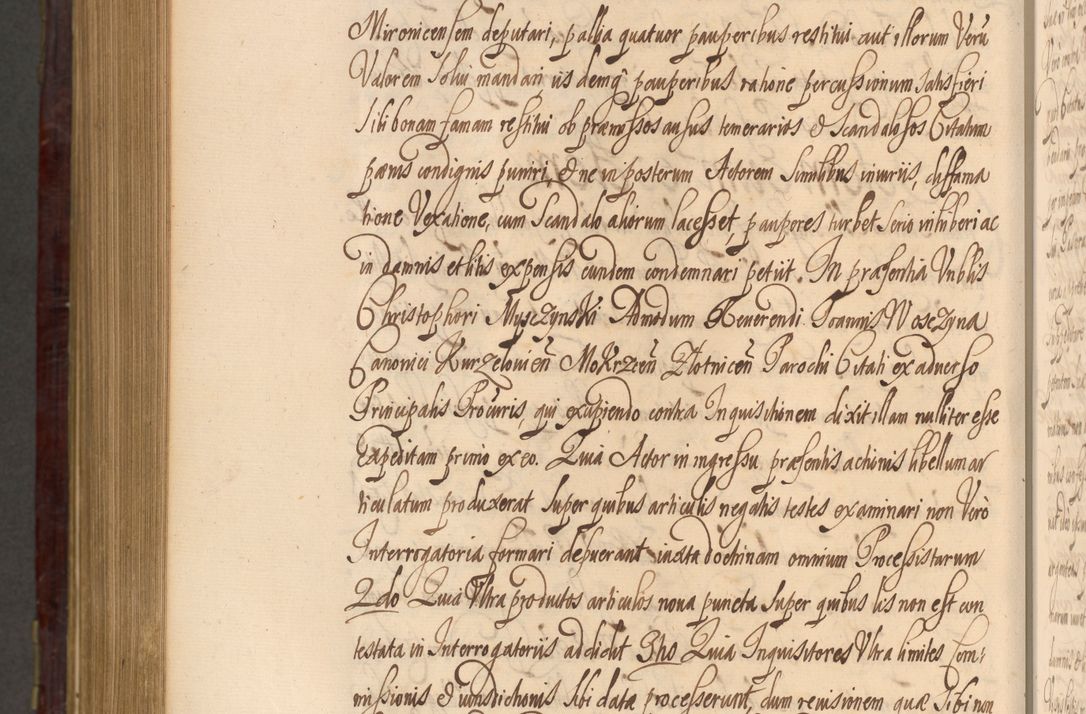 Mironicensem deputari, pallia quatuor pauperibus restitui aut illorum Verũ
Valorem solui mandari iisdemq̃ pauperibus ratione percussionum satisfieri
sibi bonam famam restitui ob præmissos ausus temerarios & scandalosos Citatum
pænis condignis puniri, & ne in posterum Actorem similibus iniuriis, diffama
tione Vexatione, cum scandalo aliorum lacesset, pauperes turbet serio inhiberi ac
in damnis et litis expensis eundem condemnari petiit. In præsentia Vnblis
Christophori Myszynski Admodum Reuerendi Joannis Woszyna
Canonici Kurzelouien̄ Mokrzen̄ Zlotnicen̄ Parochi Citati ex aduerso
Principalis Procuris, qui excipiendo contra Inquisitionem dixit illam nulliter esse
Expeditam primo ex eo. Quia Actor in ingressu præsentis actionis libellum ar
ticulatum produxerat super quibus articulis negatis testes examinari non Verò
Interrogatoria formari debuerant iuxta doctrinam omnium Processistarum
2do Quia Vltra productos articulos noua puncta super quibus lis non est con
testata in Interrogatoriis addidit 3tio Quia Inquisitores Vltra limites Com:
missionis & iurisdictionis sibi datæ processerunt, dum reuisionem quæ sibi non